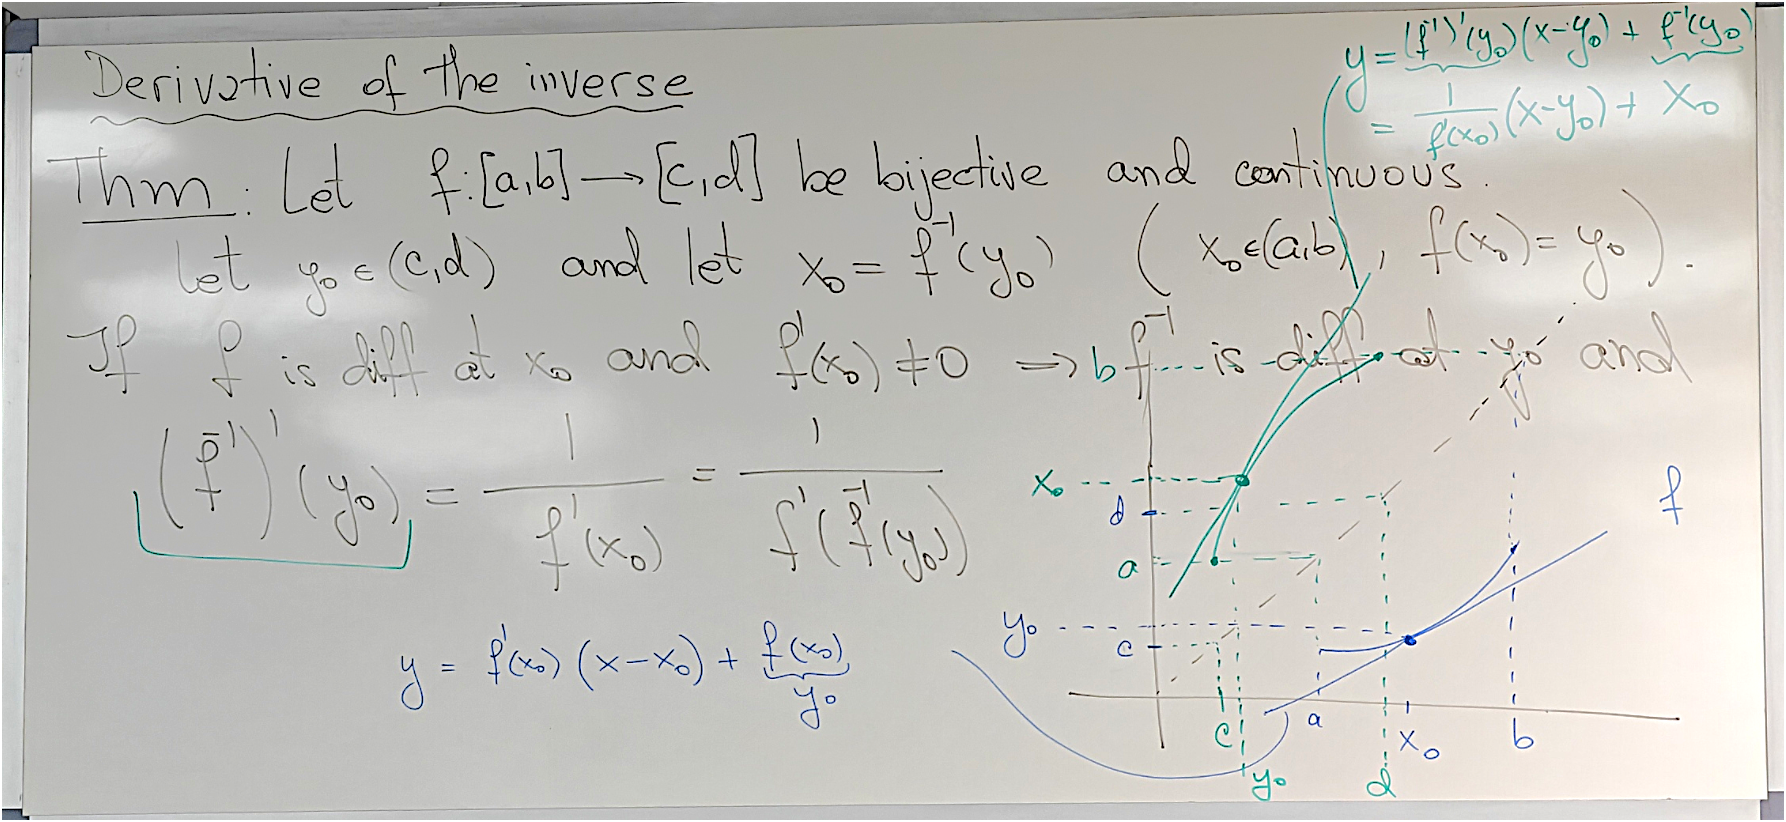 Derivative of the inverse
y = (f⁻¹)'(y₀)(x-y₀) + f⁻¹(y₀)
= 1/f'(x₀) (x-y₀) + x₀
Thm: Let f: [a,b] → [c,d] be bijective and continuous.
Let y₀ ∈ (c,d) and let x₀ = f⁻¹(y₀) ( x₀ ∈ (a,b), f(x₀) = y₀ ).
If f is diff at x₀ and f'(x₀) ≠ 0 ⇒ f⁻¹ is diff at y₀ and
(f⁻¹)'(y₀) = 1/f'(x₀) = 1/f'(f⁻¹(y₀))
y = f'(x₀) (x-x₀) + f(x₀)
y₀
b
x₀
d
a
y₀
c
f
c
y₀
a
d
x₀
b